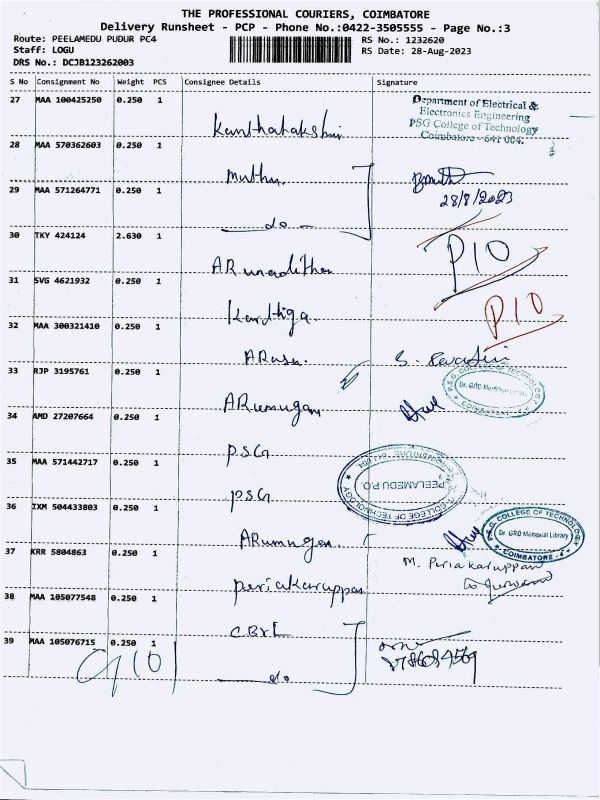 THE PROFESSIONAL COURIERS, COIMBATORE
Delivery Runsheet - PCP - Phone No.:0422-3505555 - Page No.:3
Route: PEELAMEDU PUDUR PC4
RS No.: 1232620
Staff: LOGU
RS Date: 28-Aug-2023
DRS No.: DCJB123262003
S No Consignment No Weight PCS Consignee Details Signature
27 MAA 100425250 0.250 1
Department of Electrical &
Electronics Engineering
PSG College of Technology
Coimbatore - 641 004.
28 MAA 570362603 0.250 1
Muthu
29 MAA 571264771 0.250 1
28/8/2023
do
30 TKY 424124 2.630 1
P10
31 SVG 4621932 0.250 1
Karthiga
P10
32 MAA 300321410 0.250 1
ARasu
S. Revathi
33 RJP 3195761 0.250 1
P.S.G. COLLEGE OF TECHNOLOGY
Dr. GRD Memorial Library
COIMBATORE-4
ARumugam
34 AMD 27207664 0.250 1
PSG
35 MAA 571442717 0.250 1
PEELAMEDU P.O.
COLLEGE OF TECHNOLOGY
PSG
36 IXM 504433803 0.250 1
P.S.G. COLLEGE OF TECHNOLOGY
Dr. GRD Memorial Library
COIMBATORE-4
ARumugam
37 KRR 5804863 0.250 1
M. Periakaruppan
Periakaruppan
38 MAA 105077548 0.250 1
39 MAA 105076715 0.250 1
do